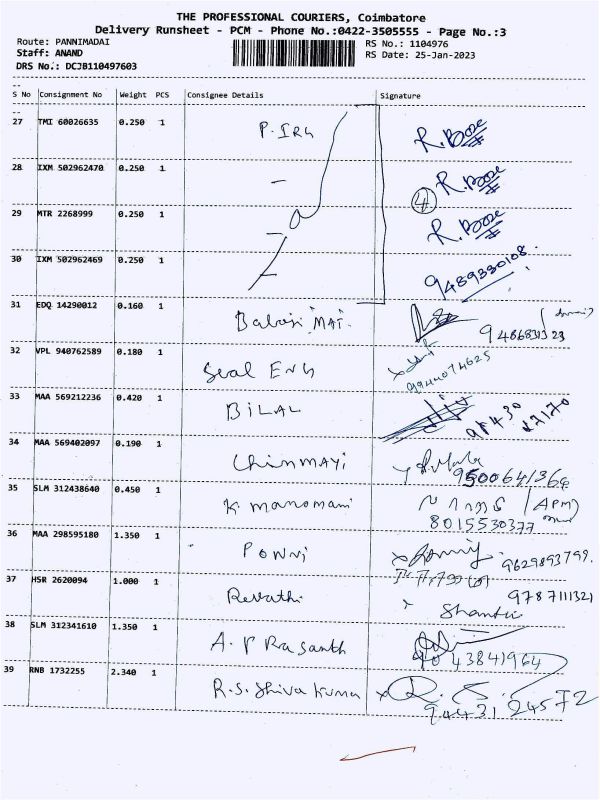 THE PROFESSIONAL COURIERS, Coimbatore
Delivery Runsheet - PCM - Phone No.:0422-3505555 - Page No.:3
Route: PANNIMADAI
RS No.: 1104976
Staff: ANAND
RS Date: 25-Jan-2023
DRS No.: DCJB110497603
S No Consignment No Weight PCS Consignee Details Signature
27 TMI 60026635 0.250 1 P. IRG R. Bose
28 IXM 502962470 0.250 1 R. Bose
4
29 MTR 2268999 0.250 1 R. Bose
30 IXM 502962469 0.250 1 9489330108.
31 EDQ 14290012 0.160 1 Balaji MAT.
32 VPL 940762589 0.180 1 Seal ENG 9944074625
33 MAA 569212236 0.420 1 BILAL
34 MAA 569402097 0.190 1 Chinmayi R. Mala
9500641364
35 SLM 312438640 0.450 1 K. Manomani (APM)
8015530377
36 MAA 298595180 1.350 1 PONNi 9629893799.
37 HSR 2620094 1.000 1 Revathi 9787111321
Shanthi
38 SLM 312341610 1.350 1 A. P Rasanth 9043841964
39 RNB 1732255 2.340 1 R.S. Shiva kumar R. S.
94431 24572